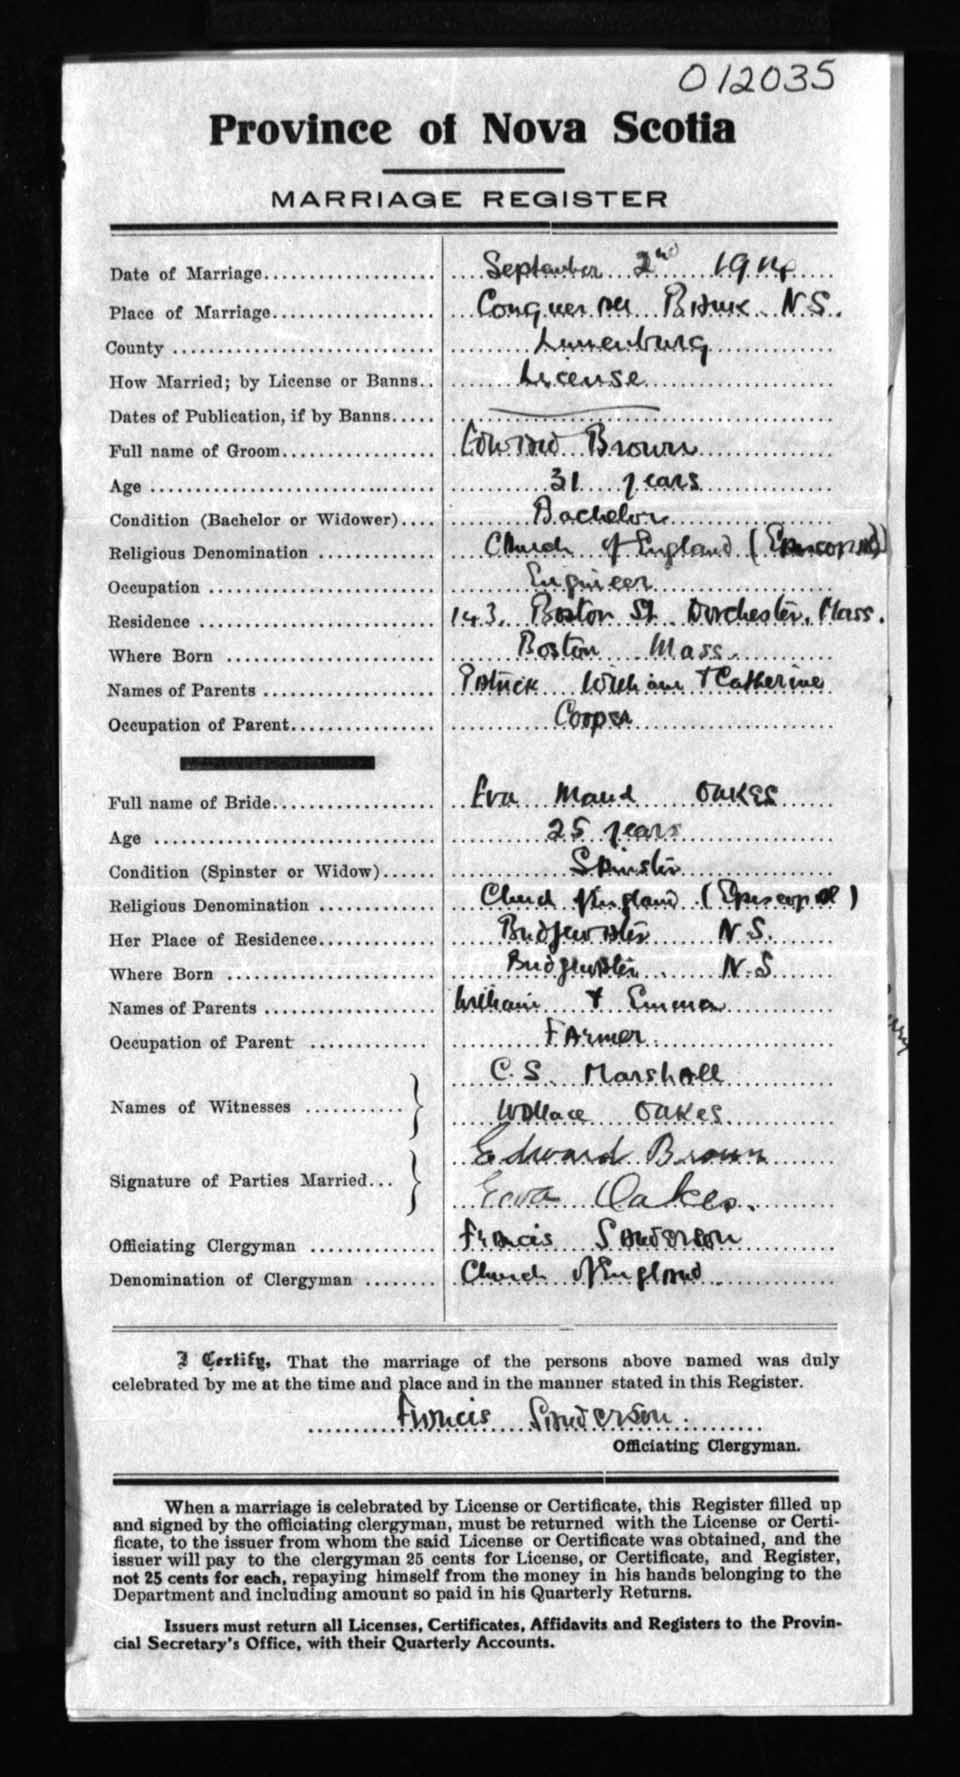 012035
Province of Nova Scotia
MARRIAGE REGISTER
Date of Marriage.................... September 2nd 1914
Place of Marriage................... Conquerall Bank N.S.
County .............................. Lunenburg
How Married; by License or Banns.. License
Dates of Publication, if by Banns.....
Full name of Groom.................. Edward Brown
Age ................................. 31 years
Condition (Bachelor or Widower).... Bachelor
Religious Denomination ............. Church of England (Episcopal)
Occupation .......................... Engineer
Residence ........................... 143. Boston St. Dorchester, Mass.
Where Born ......................... Boston Mass.
Names of Parents .................... Patrick William + Catherine
Occupation of Parent................. Cooper
Full name of Bride................... Eva Maud Oakes
Age ................................. 25 years
Condition (Spinster or Widow)...... Spinster
Religious Denomination ............. Church of England (Episcopal)
Her Place of Residence.............. Bridgewater N.S.
Where Born ......................... Bridgewater N.S
Names of Parents .................... William + Emma
Occupation of Parent .............. Farmer.
C.S. Marshall
Names of Witnesses ...........
Wallace Oakes
Edward Brown
Signature of Parties Married...
Eva Oakes.
Officiating Clergyman ............... Francis Sanderson
Denomination of Clergyman ........ Church of England
I Certify, That the marriage of the persons above named was duly
celebrated by me at the time and place and in the manner stated in this Register.
Francis Sanderson.
Officiating Clergyman.
When a marriage is celebrated by License or Certificate, this Register filled up
and signed by the officiating clergyman, must be returned with the License or Certi-
ficate, to the issuer from whom the said License or Certificate was obtained, and the
issuer will pay to the clergyman 25 cents for License, or Certificate, and Register,
not 25 cents for each, repaying himself from the money in his hands belonging to the
Department and including amount so paid in his Quarterly Returns.
Issuers must return all Licenses, Certificates, Affidavits and Registers to the Provin-
cial Secretary's Office, with their Quarterly Accounts.